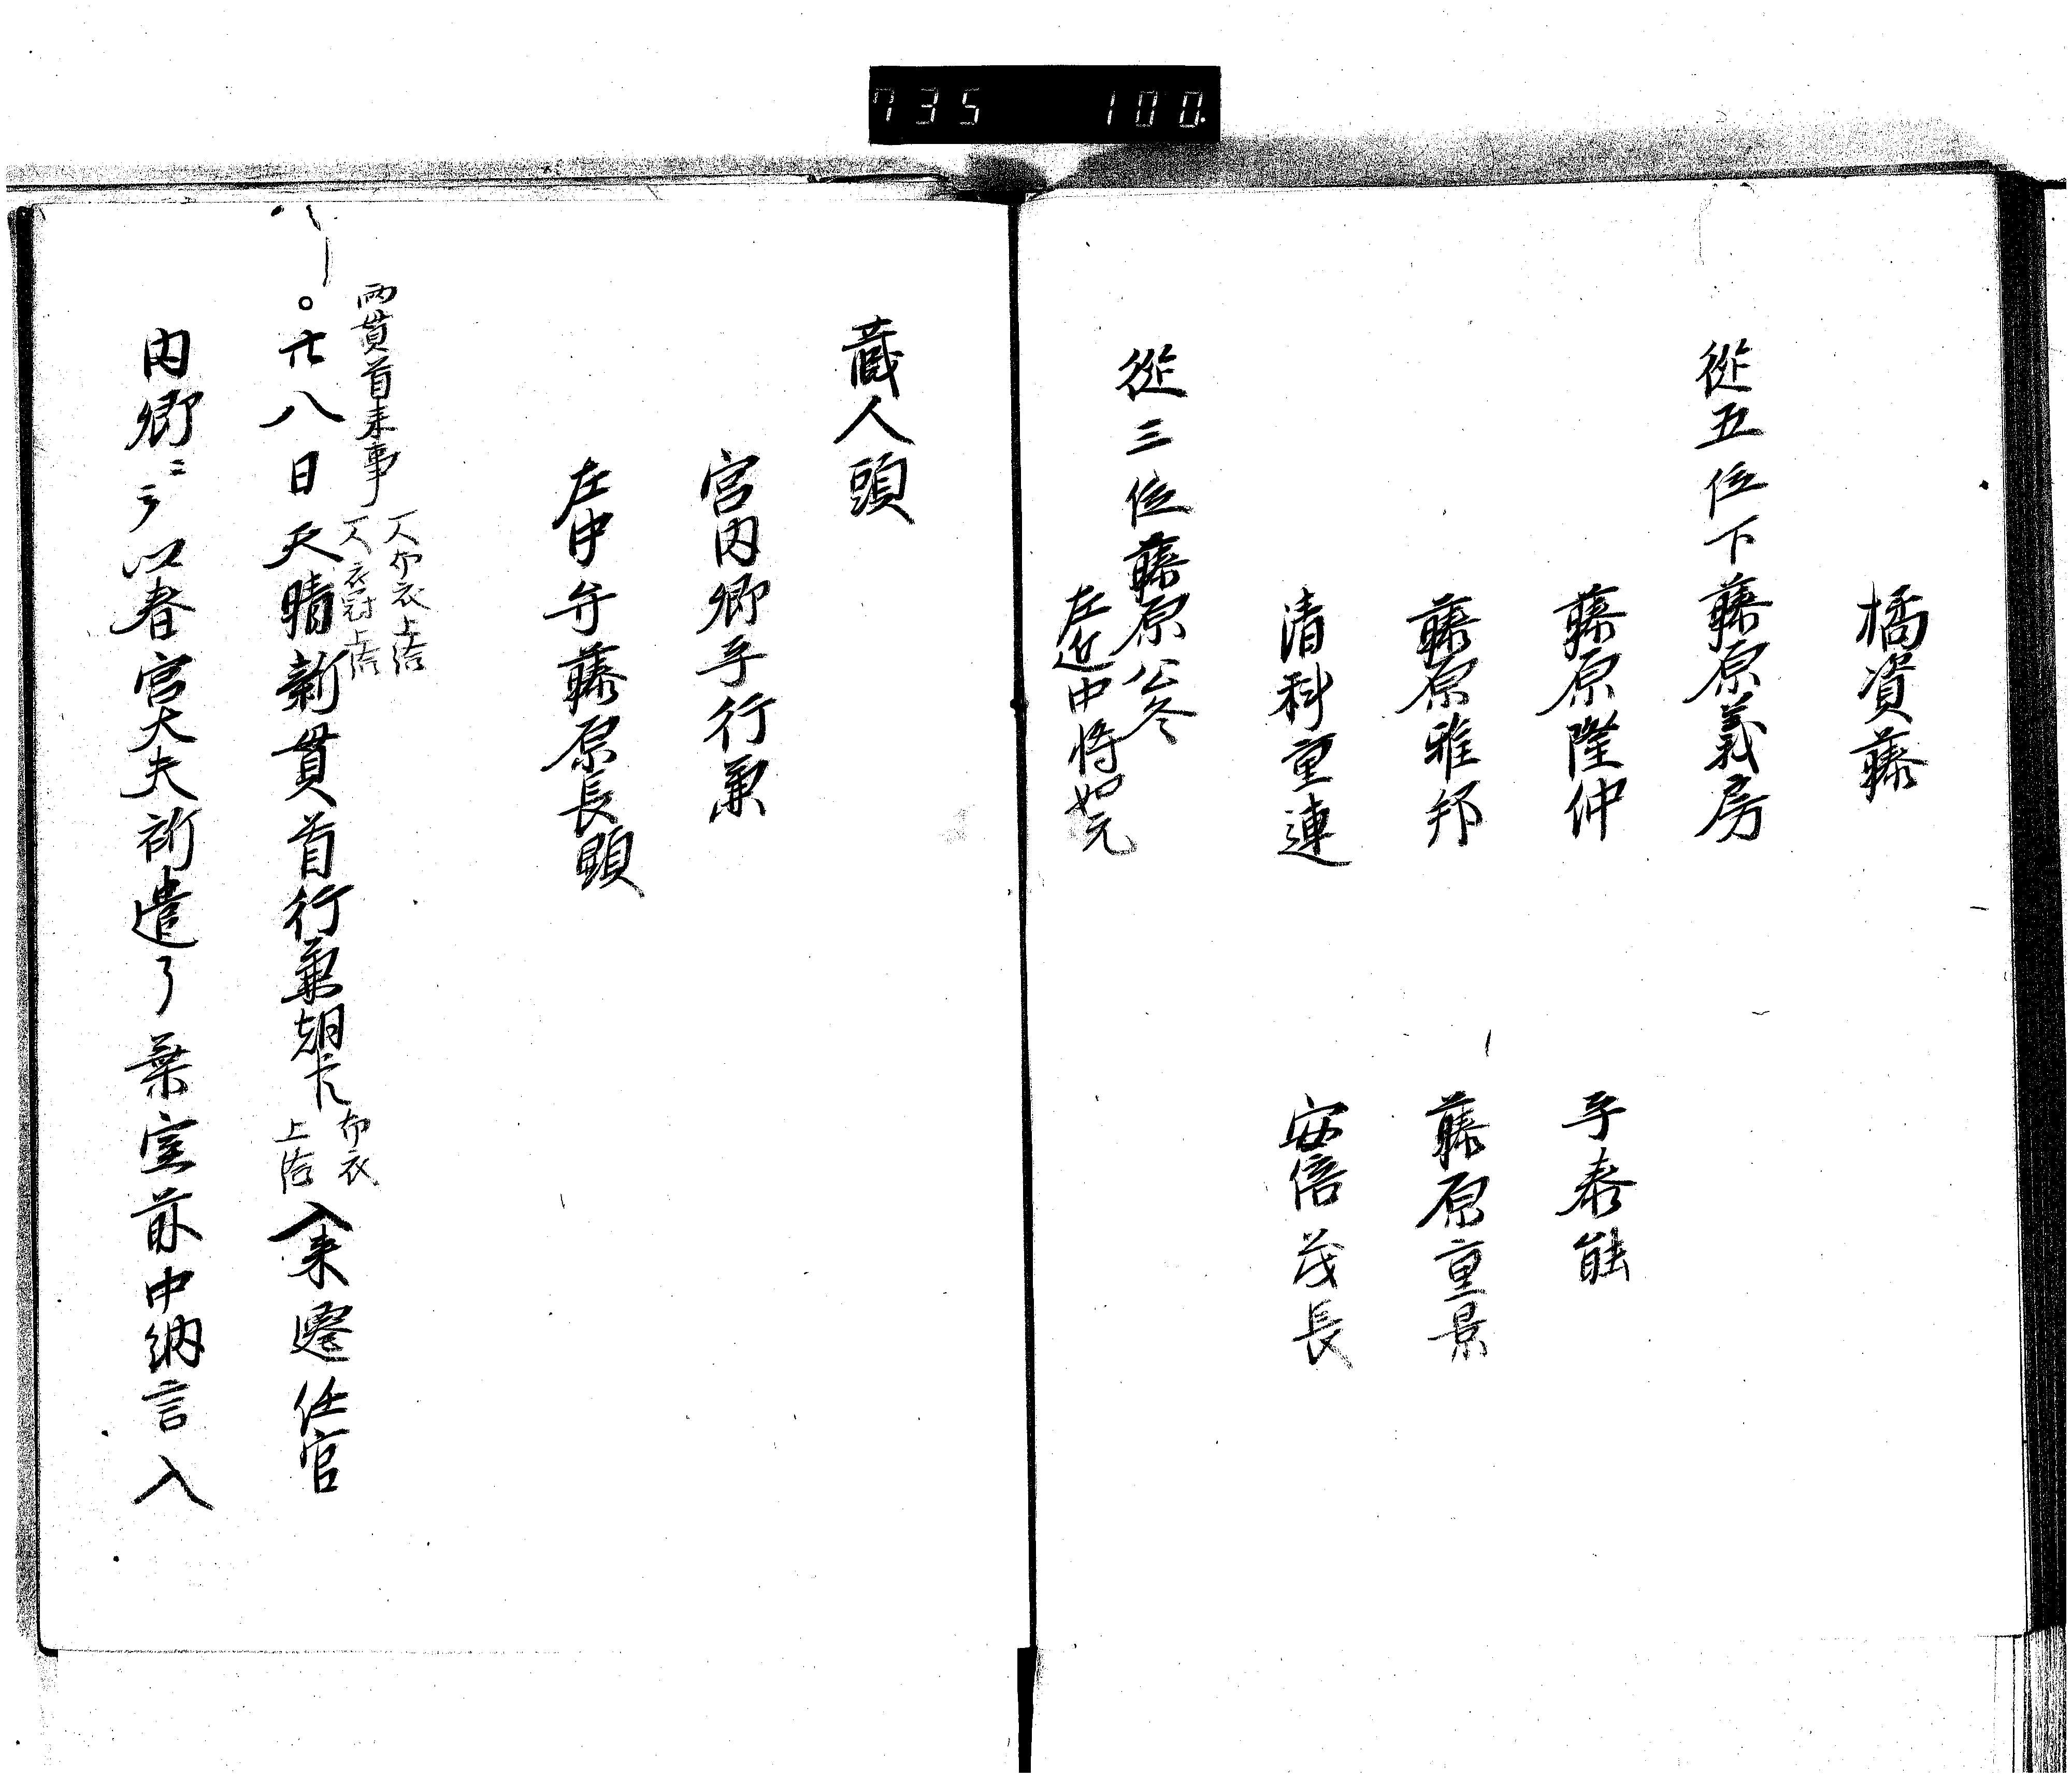 735 100
橘資藤
従五位下藤原義房
藤原隆仲 平泰能
藤原雅邦 藤原重景
清科重連 安倍茂長
従三位藤原公冬
左近中将如元
蔵人頭
宮内卿平行兼
左中弁藤原長顕
両貫首来事 一人布衣上括 一人衣冠上括
廿八日天晴新貫首行兼朝臣布衣上括入来遷任官
内卿云々以春宮大夫 遣了葉室前中納言入